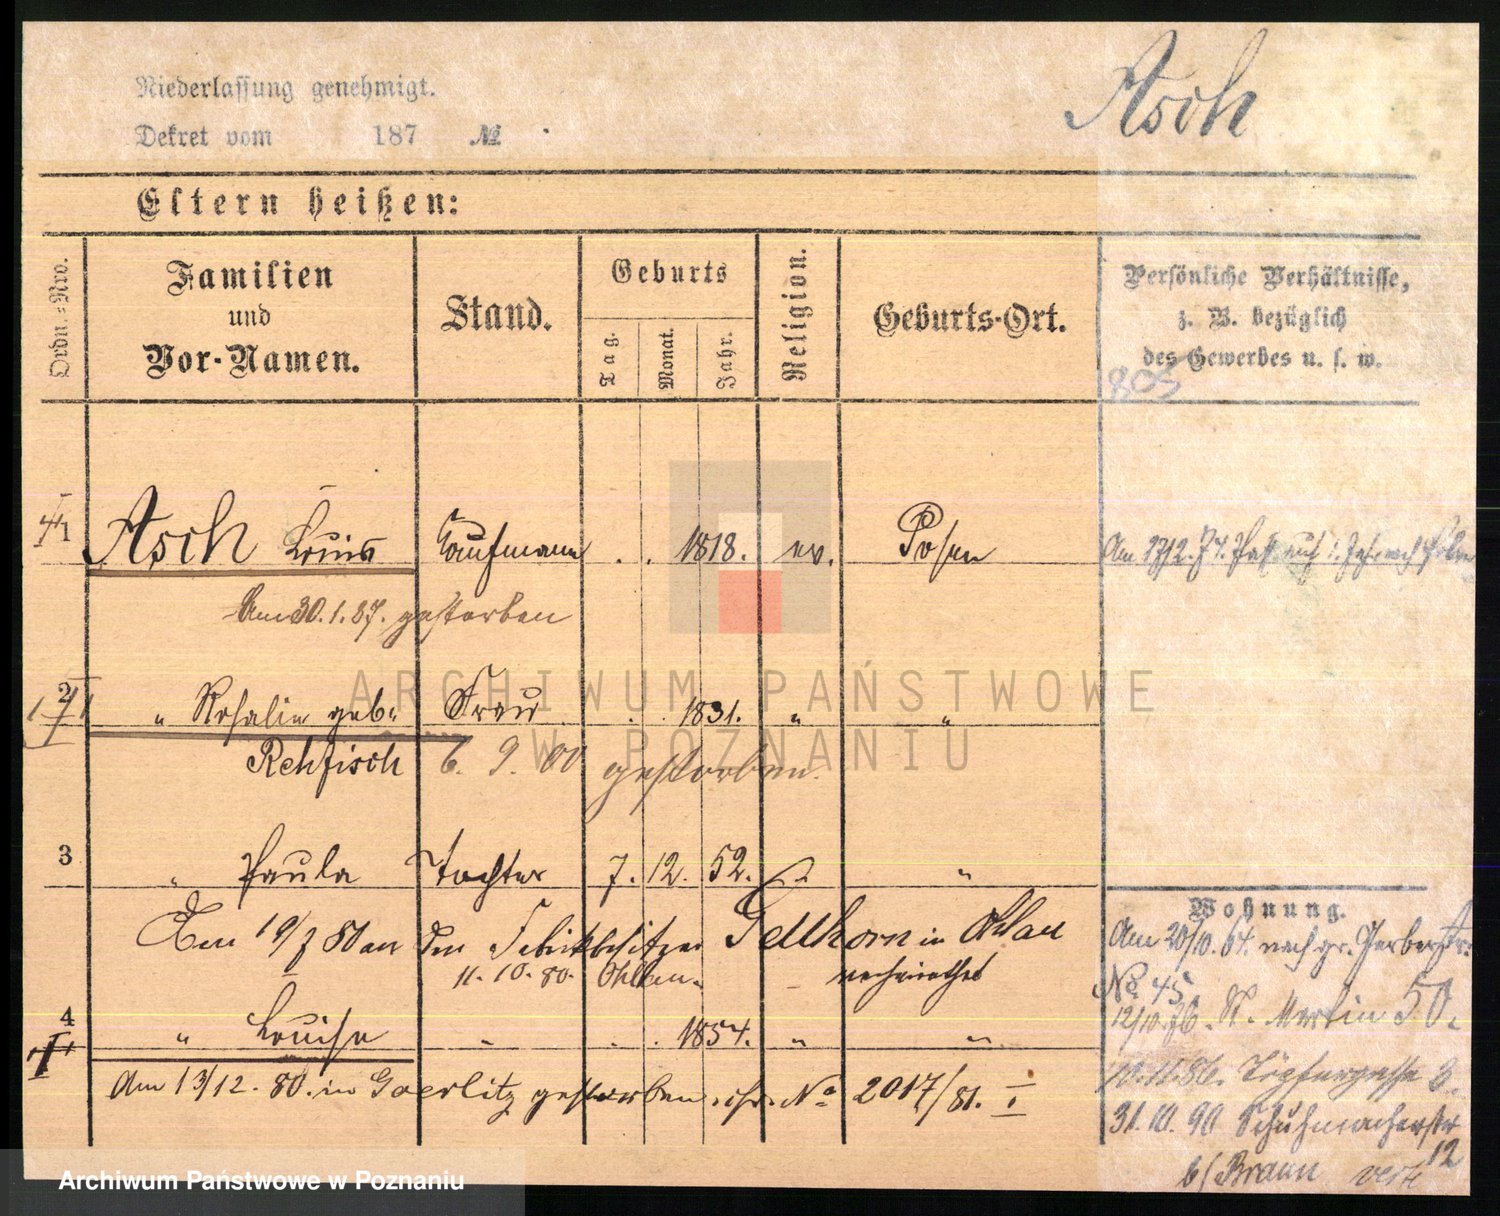 Niederlassung genehmigt.
Dekret vom 187 №
Asch
Eltern heißen:
Ordn.-Nro.
Familien
und
Vor-Namen.
Stand.
Geburts
Tag.
Monat.
Jahr.
Religion.
Geburts-Ort.
Persönliche Verhältnisse,
z. B. bezüglich
des Gewerbes u. s. w.
805
1 Asch Louis Kaufmann . . 1818. ev. Posen
Am 17/12. 74. Paß auf 1 Jahr nach
Am 30.1.87. gestorben
2 " Rosalie geb. Frau . . 1831. " "
Rehfisch 6. 9. 00 gestorben.
3 " Paula Tochter 7. 12. 52. "
Den 19/7 80 an den Fabrikbesitzer Gellhorn in Ohlau
11. 10. 80. Ohlau. verheirathet
4 " Louise " . . 1854. " "
Am 13/12. 80. in Goerlitz gestorben. cfr. No 2017/81. I
Wohnung.
Am 20/10. 64. nach gr. Gerberstr.
No. 45.
12/10. 76. St. Martin 50.
10.11.86. Töpfergasse 6.
31.10.90 Schuhmacherstr
12
b/Braun
ARCHIWUM PAŃSTWOWE
W POZNANIU
Archiwum Państwowe w Poznaniu